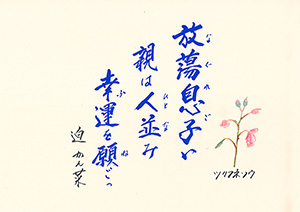 放蕩息子い
親は人並み
幸運を願ごっ
迫 かん菜
ツリフネソウ